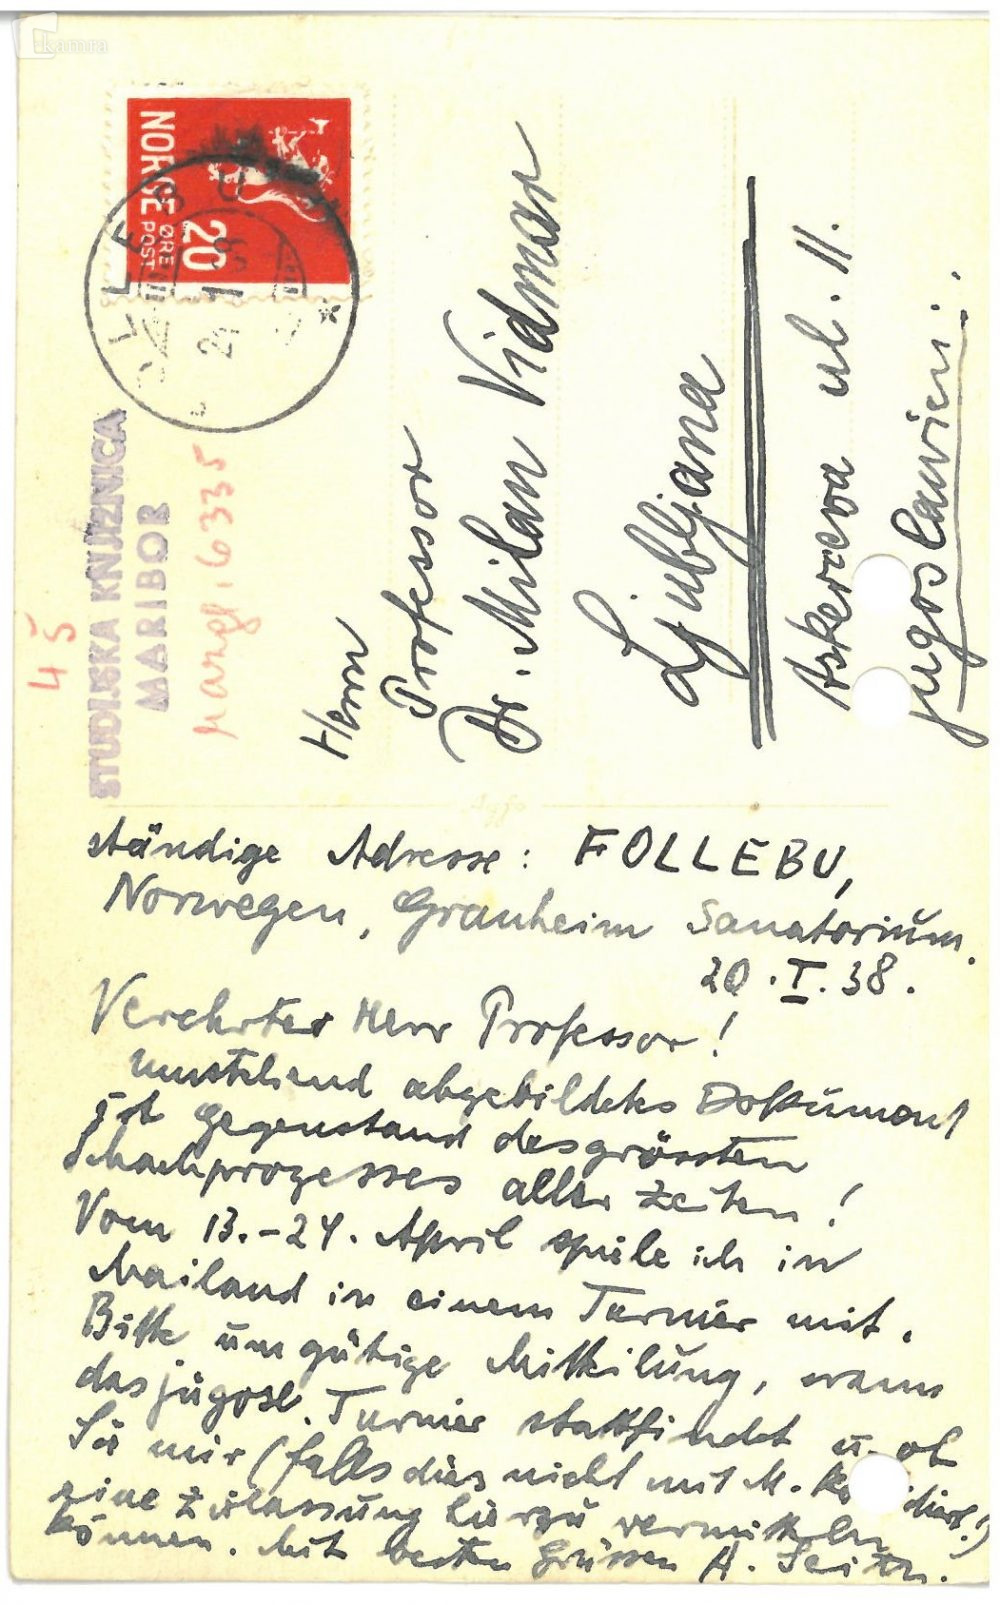 kamra
NORGE
POST
ØRE
20
FOLLEBU
24 1 38
STUDIJSKA KNJIŽNICA
MARIBOR
45
6335
Herrn
Professor
Dr. Milan Vidmar
Ljubljana
Askerceva ul. 11.
Jugoslawien.
ständige Adresse: FOLLEBU,
Norwegen, Granheim Sanatorium.
20.I.38.
Verehrter Herr Professor!
Umstehend abgebildetes Dokument
ist Gegenstand des grössten
Schachprozesses aller Zeiten!
Vom 13.-24. April spiele ich in
Mailand in einem Turnier mit.
Bitte um gütige Mitteilung, wann
das jugosl. Turnier stattfindet u. ob
Sie mir (falls dies nicht mit M.
eine Zulassung hierzu vermitteln
können. Mit besten Grüssen A. Seitz.